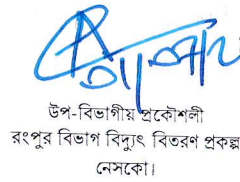 উপ-বিভাগীয় প্রকৌশলী
রংপুর বিভাগ বিদ্যুৎ বিতরণ প্রকল্প
নেসকো।